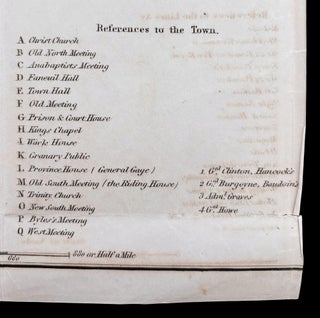 References to the Town.
A Christ Church
B Old North Meeting
C Anabaptists Meeting
D Faneuil Hall
E Town Hall
F Old Meeting
G Prison & Court House
H Kings Chapel
I Work House
K Granary Public
L Province House (General Gage) 1 Gen.l Clinton, Hancock's
M Old South Meeting (the Riding House) 2 Gen.l Burgoyne, Baudoin's
N Trinity Church 3 Adm.l Graves
O New South Meeting 4 Gen.l Howe
P Byles's Meeting
Q West Meeting
660 880 or Half a Mile